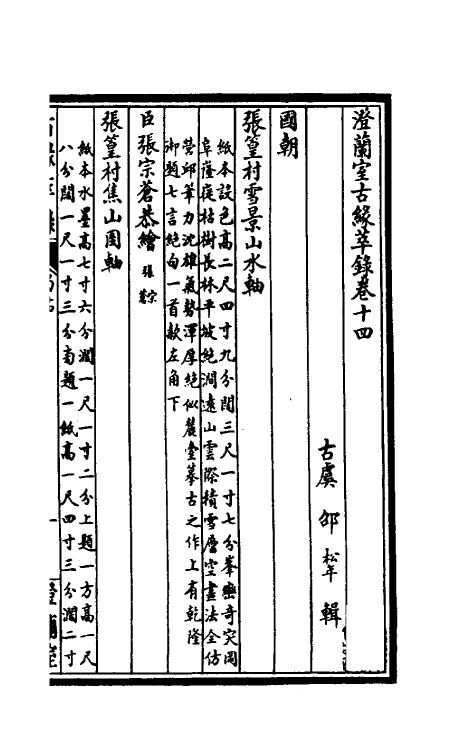 澄蘭室古緣萃錄卷十四
古虞邵松年輯
國朝
張篁村雪景山水軸
紙本設色高二尺四寸九分闊三尺一寸七分峯巒奇突岡
阜蘿蓰枯樹長林平坡絕澗遠山雲際積雪層空畫法全仿
營邱筆力沈雄氣勢渾厚絕似麓臺摹古之作上有乾隆
御題七言絕句一首款左角下
臣張宗蒼恭繪 張 宗蒼
張篁村焦山圖軸
紙本水墨高七寸六分濶一尺一寸二分上題一方高一尺
八分闊一尺一寸三分南題一紙高一尺四寸三分濶二寸